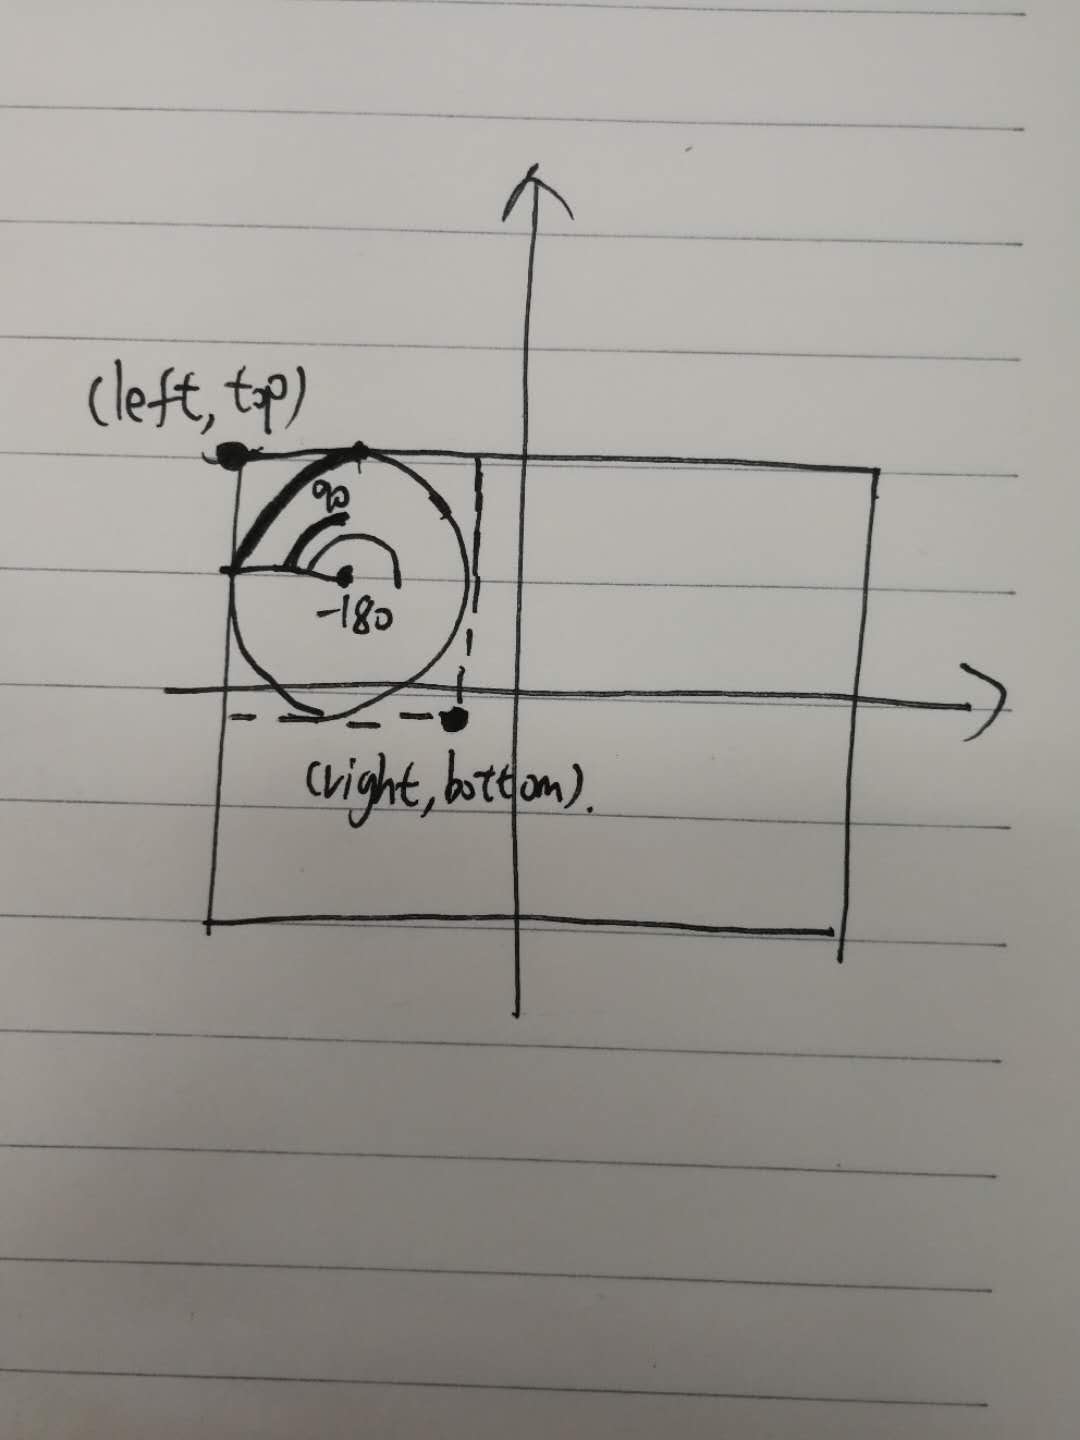 (left, top)
90
-180
(right, bottom).